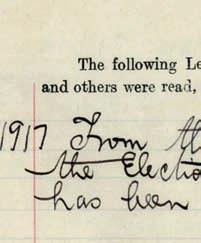 The following Le
and others were read,
1917 From th
the Electio
has been